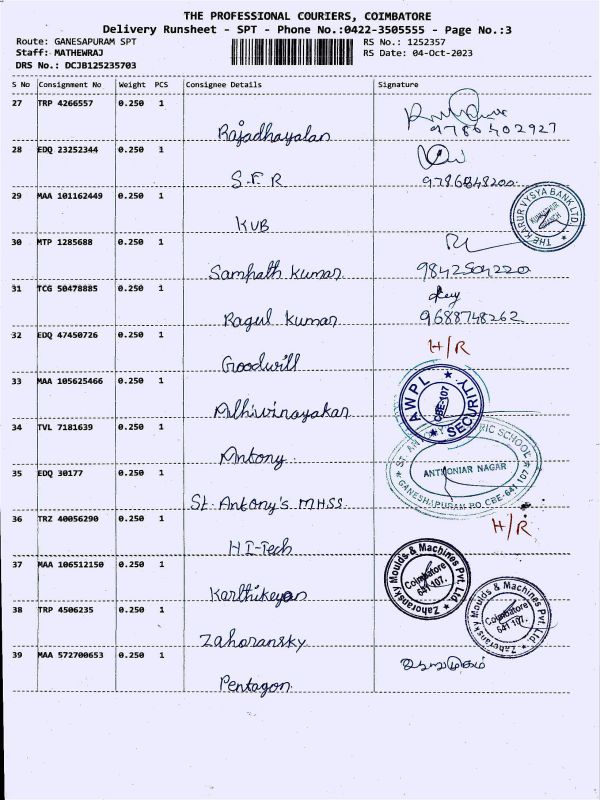 THE PROFESSIONAL COURIERS, COIMBATORE
Delivery Runsheet - SPT - Phone No.:0422-3505555 - Page No.:3
Route: GANESAPURAM SPT RS No.: 1252357
Staff: MATHEWRAJ RS Date: 04-Oct-2023
DRS No.: DCJB125235703
S No Consignment No Weight PCS Consignee Details Signature
27 TRP 4266557 0.250 1
Rajadhayalan 9786402927
28 EDQ 23252344 0.250 1
S.F.R 9786848200
29 MAA 101162449 0.250 1
KVB THE KARUR VYSYA BANK LTD BRANCH
30 MTP 1285688 0.250 1
Samphath kumar 9842504220
31 TCG 50478885 0.250 1
Ragul kumar 9688748262
32 EDQ 47450726 0.250 1 H/R
Goodwill
33 MAA 105625466 0.250 1
Adhivinayakan AWPL SECURITY CBE-107
34 TVL 7181639 0.250 1
Antony
35 EDQ 30177 0.250 1 ANTHONIAR NAGAR
St. Antony's MHSS GANESHAPURAM PO, CBE-641 107
36 TRZ 40056290 0.250 1 H/R
HI-Tech
37 MAA 106512150 0.250 1 Zahoransky Moulds & Machines Pvt. Ltd. Coimbatore 641 107.
Karthikeyan
38 TRP 4506235 0.250 1 Zahoransky Moulds & Machines Pvt. Ltd. Coimbatore 641 107.
Zahoransky
39 MAA 572700653 0.250 1
Pentagon